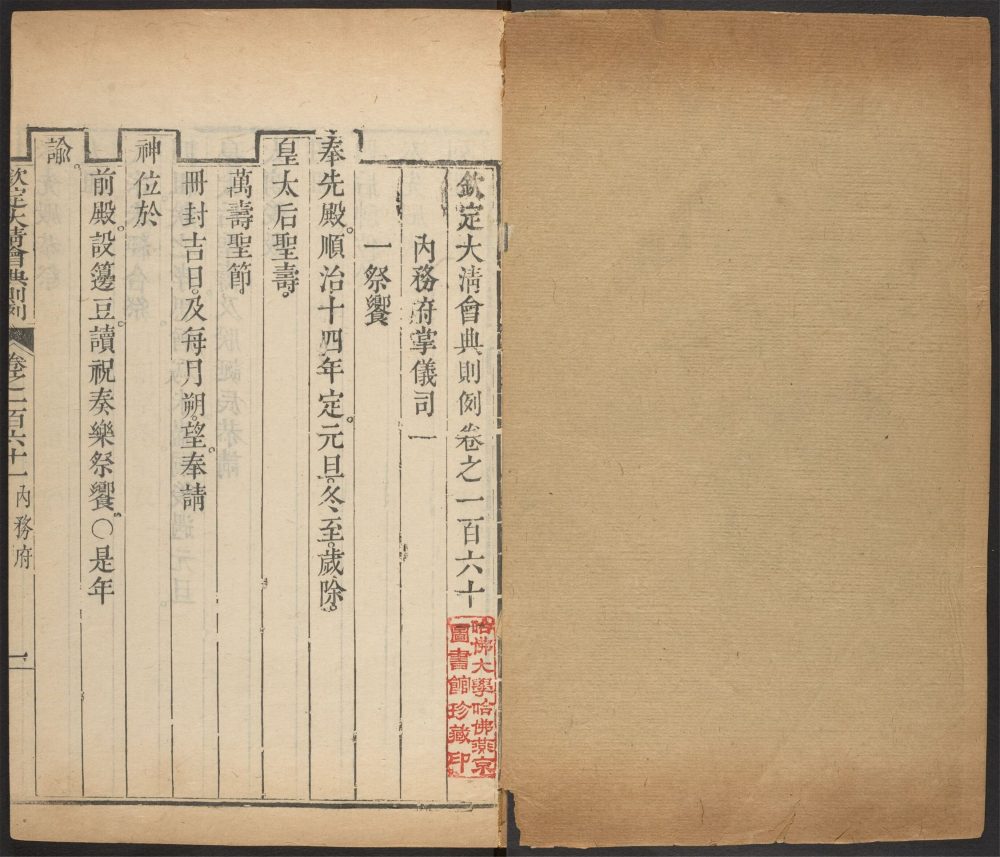 欽定大清會典則例卷之一百六十一
內務府掌儀司一
一祭饗
奉先殿。順治十四年定。元旦。冬至。歲除。
皇太后聖壽。
萬壽聖節。
冊封吉日。及每月朔。望。奉請
神位於
前殿。設籩豆。讀祝奏樂祭饗。○是年
諭。
欽定大清會典則例 卷之一百六十一 內務府 一
哈佛大學哈佛燕京
圖書館珍藏印